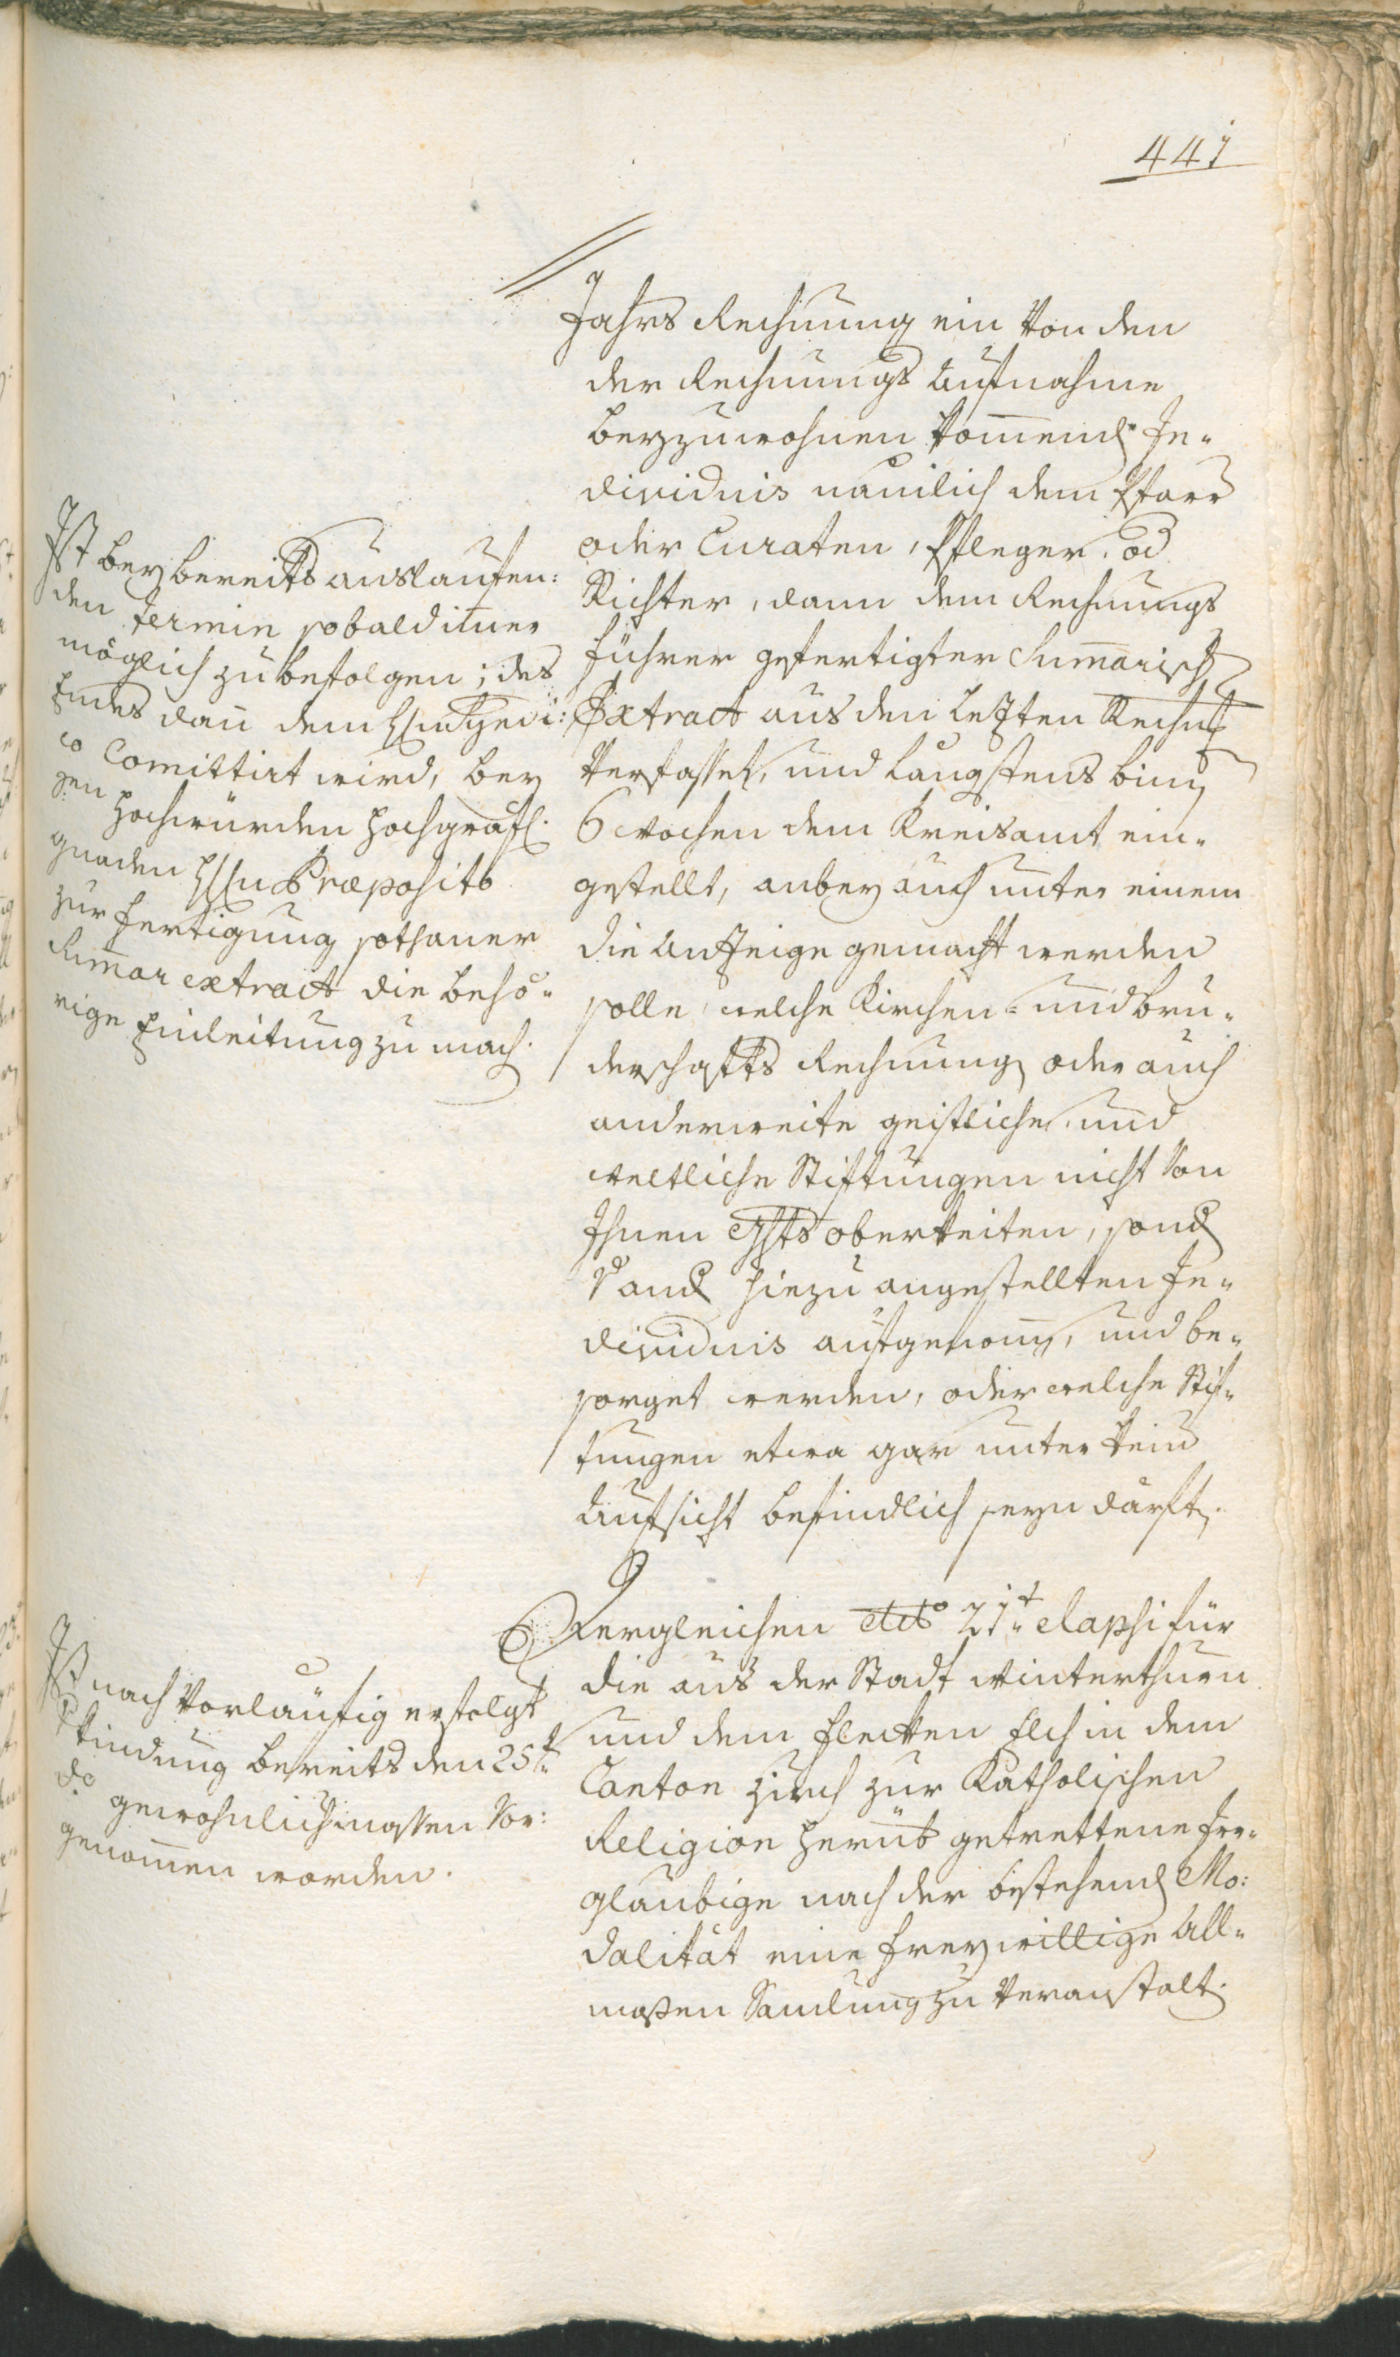 441
Jahrs Rechnung ein von den
der Rechnungs Aufnahme
beyzuwohnen kommend In-
dividuis nämlich dem Pfarr
oder Curaten, Pfleger, od
Richter, dann dem Rechnungs
führer gefertigter Summarisch
Extract aus den lezten Rechng
verfasset, und längstens binn
6 wochen dem Kreisamt ein-
gestellt, anbey auch unter einem
die Anzeige gemacht werden
solle, welche Kirchen- und Bru-
derschafts Rechnung, oder auch
anderweite geistliche, und
weltliche Stiftungen nicht von
Ihnen Ghts oberkeiten, sond
von hiezu angestellten In-
dividuis aufgenomm, und be-
sorget werden, oder welche Stif-
tungen etwa gar unter kein
Aufsicht befindlich seyn därft.
Ist bey bereits auslaufen:
den Termin sobald imer
möglich zu befolgen; des
Endes dann dem Hn Syndi:
co Comittirt wird, bey
Hochwürden Hochgräfl.
gnaden Hn Præposito
zur fertigung sothaner
Sumar extract die behö-
rige Einleitung zu mach.
Dergleichen dto 21t elapsi für
die aus der Stadt Winterthurn
und dem flecken Elch in dem
Canton Zirch zur Katholischen
Religion herüb getrettene Irr-
gläubige nach der bestehend Mo:
dalität eine freywillige All-
mosen Samlung zu veranstalt.
Ist nach vorläufig erfolgt
kindung bereits den 25t
do gewohnlichmassen vor:
genommen worden.